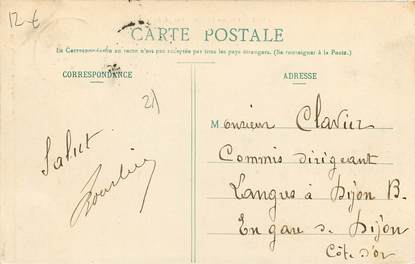 12 €
CARTE POSTALE
La Correspondance au recto n'est pas acceptée par tous les pays étrangers. (Se renseigner à la Poste.)
CORRESPONDANCE
ADRESSE
21)
Salut
Monsieur Clavier
Commis dirigeant
Langres à Dijon B.
En gare de Dijon
Côte d'or